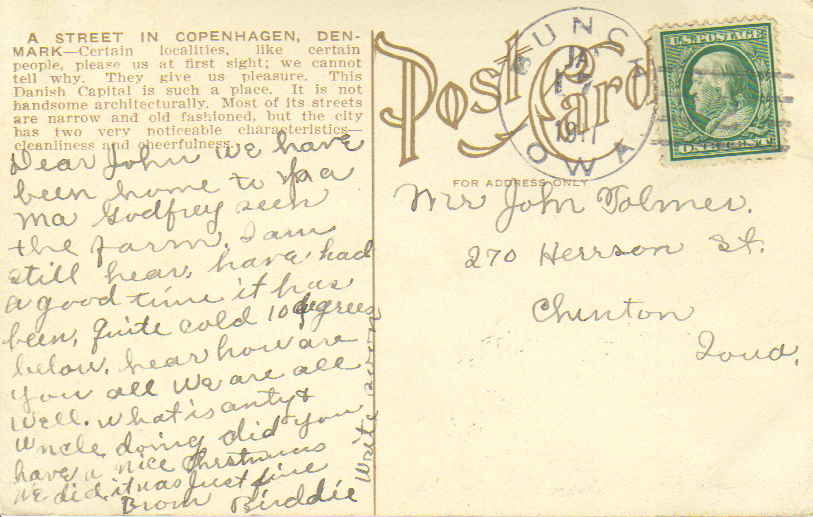 A STREET IN COPENHAGEN, DEN-
MARK—Certain localities, like certain
people, please us at first sight; we cannot
tell why. They give us pleasure. This
Danish Capital is such a place. It is not
handsome architecturally. Most of its streets
are narrow and old fashioned, but the city
has two very noticeable characteristics—
cleanliness and cheerfulness.
Dear John we have
been home to Pa
Ma Godfrey seen
the Farm. I am
still hear, have had
a good time it has
been, quite cold 10 degrees
below, hear how are
you all we are all
well. what is anty &
uncle doing did you
have a nice Christmas
we did, it was just fine
From Birddie
Write soon
Post Card
FOR ADDRESS ONLY
JA
IOWA
U.S. POSTAGE
ONE CENT
Mr John Tolmer.
270 Herrson St.
Clinton
Iowa.